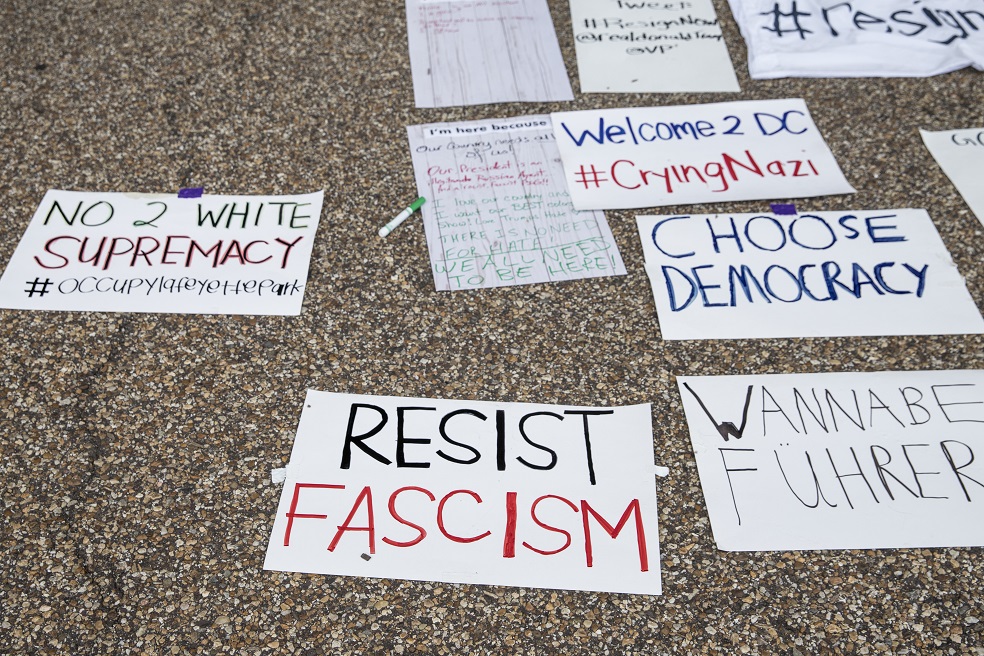 Tweet
#ResignNow
@realdonaldTrump
@VP
#resign
I'm here because
Our Country needs all
of us!
Our President is an
I love our country
I want our BEST
THERE IS NO NEED
FOR HATE!
WE ALL NEED
TO BE HERE!
Welcome 2 DC
#CryingNazi
NO 2 WHITE
SUPREMACY
#OCCUPYlafeyettepark
CHOOSE
DEMOCRACY
RESIST
FASCISM
WANNABE
FÜHRER